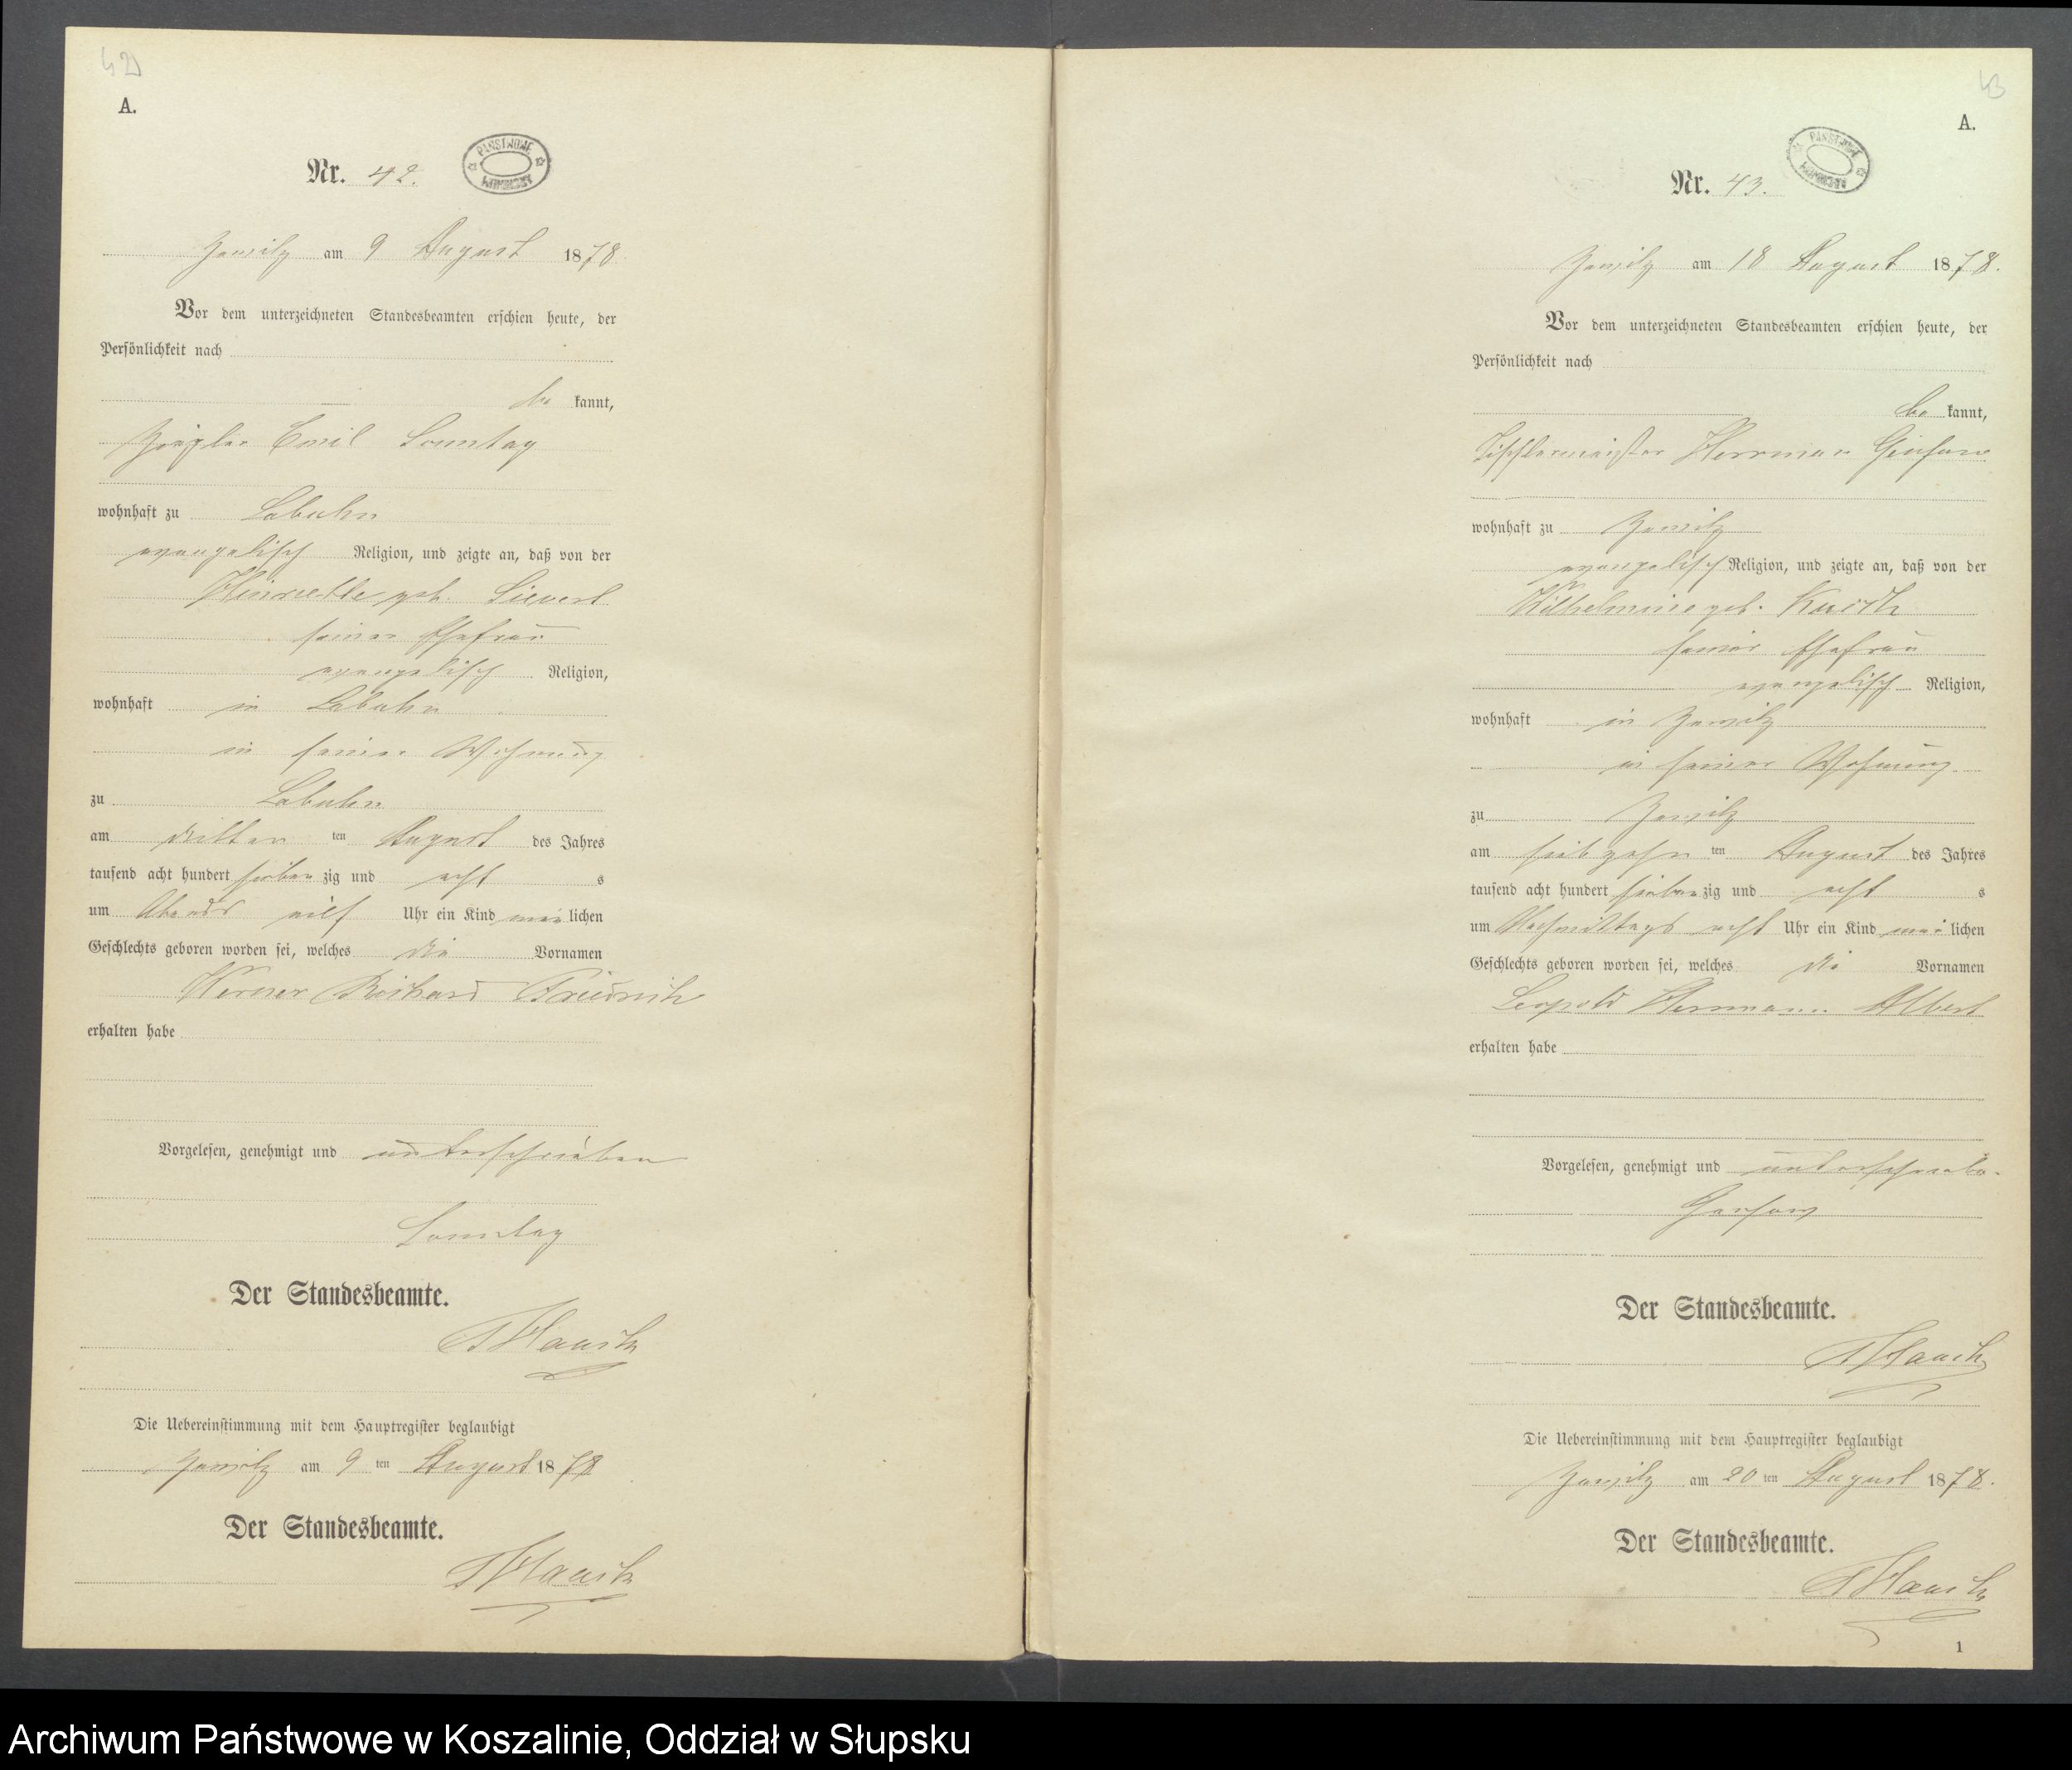 42
A.
PAŃSTWOWE ARCHIWUM
Nr. 42.
am 9 August 1878
Vor dem unterzeichneten Standesbeamten erschien heute, der
Persönlichkeit nach
be kannt,
Ziegler Emil Sonntag
wohnhaft zu Labuhn
evangelisch Religion, und zeigte an, daß von der
Henriette geb. Sievert
seiner Ehefrau
evangelisch Religion,
wohnhaft in Labuhn
in seiner Wohnung
zu Labuhn
am dritten ten August des Jahres
tausend acht hundert sieben zig und acht s
um Abends elf Uhr ein Kind män lichen
Geschlechts geboren worden sei, welches die Vornamen
Werner Richard Friedrich
erhalten habe
Vorgelesen, genehmigt und unterschrieben
Sonntag
Der Standesbeamte.
Die Uebereinstimmung mit dem Hauptregister beglaubigt
am 9 ten August 1878
Der Standesbeamte.
43
A.
PAŃSTWOWE ARCHIWUM
Nr. 43.
am 18 August 1878.
Vor dem unterzeichneten Standesbeamten erschien heute, der
Persönlichkeit nach
be kannt,
Tischlermeister Herrman
wohnhaft zu
evangelisch Religion, und zeigte an, daß von der
Wilhelmine geb.
seiner Ehefrau
evangelisch Religion,
wohnhaft in
in seiner Wohnung
zu
am siebzehn ten August des Jahres
tausend acht hundert sieben zig und acht s
um Nachmittags acht Uhr ein Kind män lichen
Geschlechts geboren worden sei, welches die Vornamen
Leopold Hermann Albert
erhalten habe
Vorgelesen, genehmigt und
Der Standesbeamte.
Die Uebereinstimmung mit dem Hauptregister beglaubigt
am 20 ten August 1878.
Der Standesbeamte.
1
Archiwum Państwowe w Koszalinie, Oddział w Słupsku